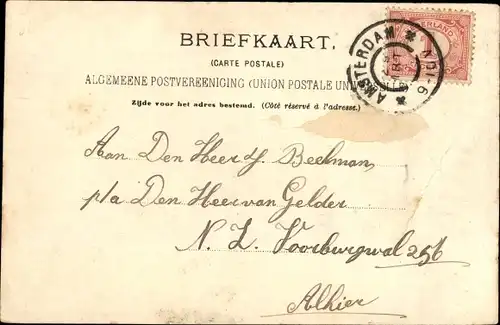 BRIEFKAART.
(CARTE POSTALE)
ALGEMEENE POSTVEREENIGING (UNION POSTALE UNI
Zijde voor het adres bestemd. (Côté réservé à l'adresse.)
AMSTERDAM
NEDERLAND
Aan Den Heer Beekman,
p/a Den Heer van Gelder
N. Z. Voorburgwal 256
Alhier